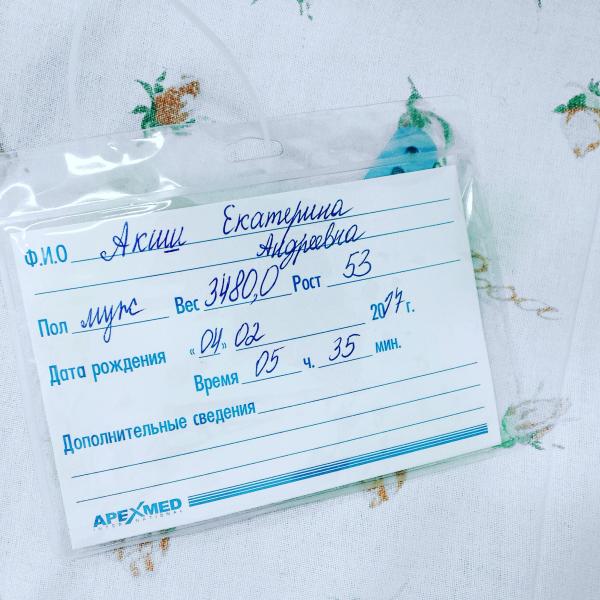 Ф.И.О Акиш Екатерина
Андреевна
Пол муж Вес 3480,0 Рост 53
Дата рождения «04» 02 2017 г.
Время 05 ч. 35 мин.
Дополнительные сведения
APEXMED
INTERNATIONAL